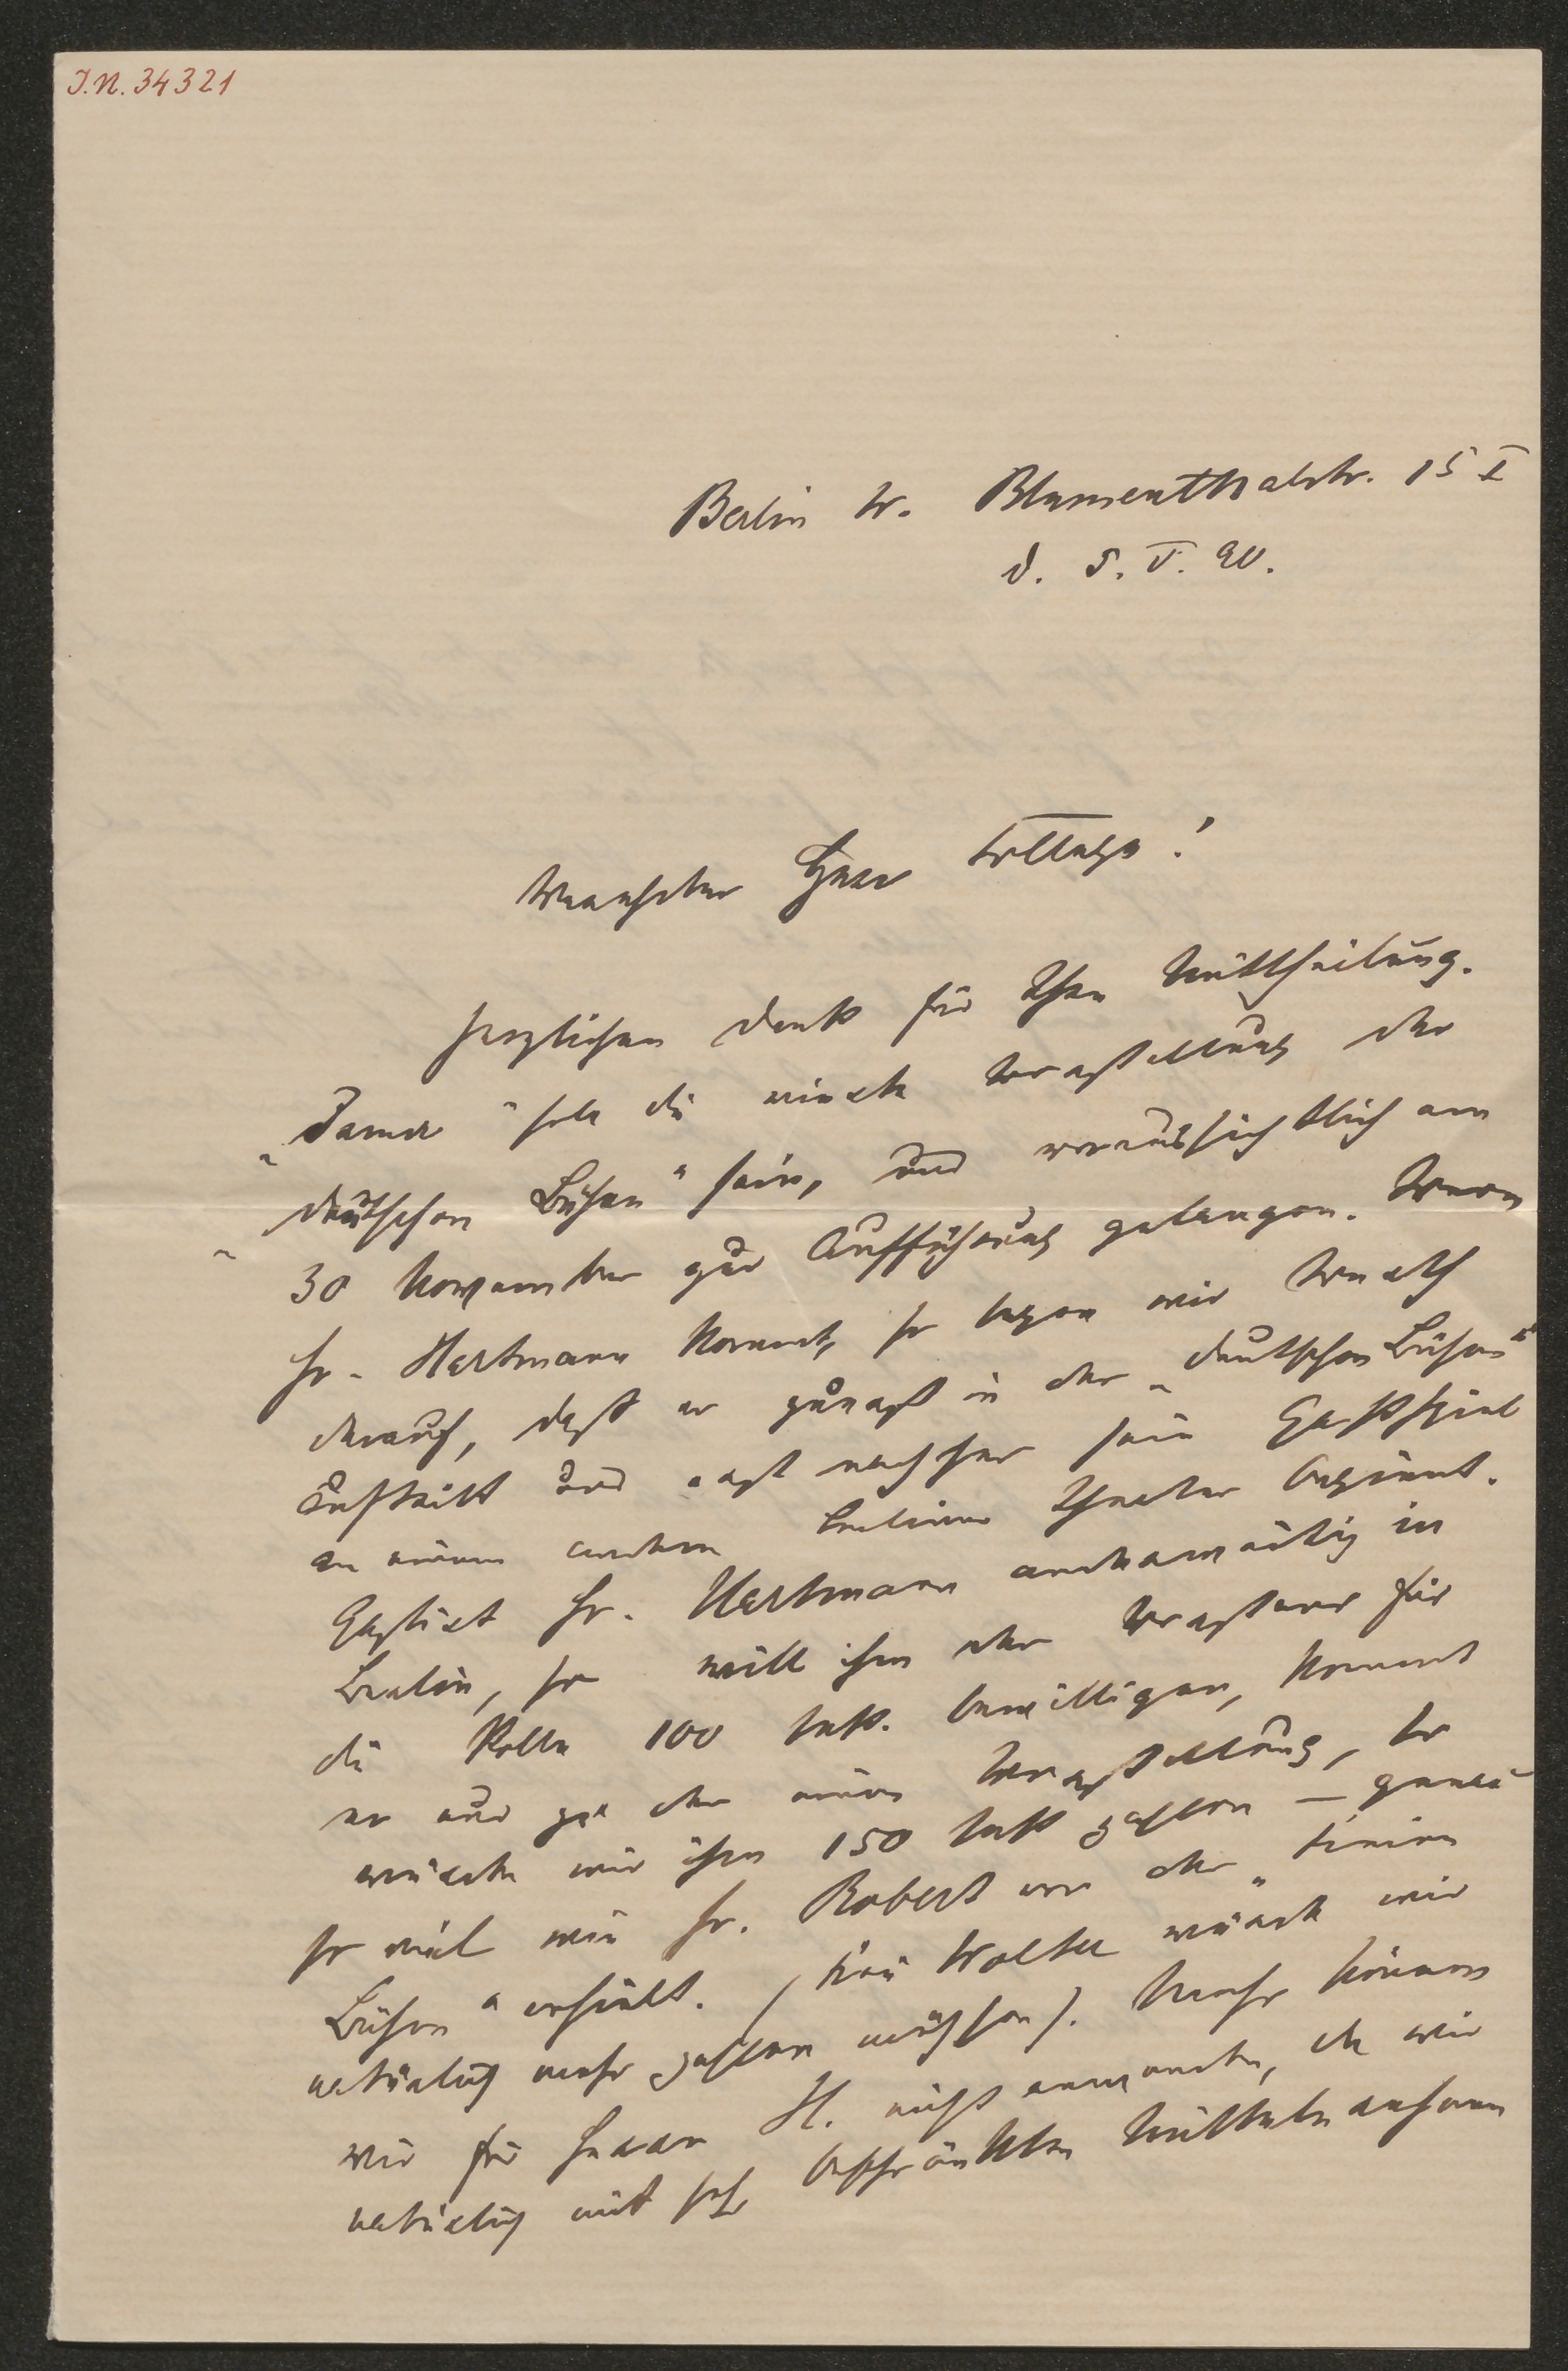 J.N. 34321
Berlin W. Blumenthalstr. 15 I
d. 5. V. 90.
Verehrter Herr College!
Herzlichen Dank für Ihre Mittheilung.
„Tamer“ soll die vierte Vorstellung der
„deutschen Bühne“ sein, und voraussichtlich am
30 November zur Aufführung gelangen. Wenn
Hr. Hartmann kommt, so legen wir Werth
darauf, daß er zunächst in der „deutschen Bühne“
auftritt und erst nachher sein Gastspiel
an einem andern Berliner Theater beginnt.
Gastirt Hr. Hartmann anderweitig in
Berlin, so will ihm der Vorstand für
die Rolle 100 Mk. bewilligen, kommt
er nur zu der einen Vorstellung, so
würden wir ihm 150 Mk zahlen — genau
so viel wie Hr. Robert von der „Freien
Bühne“ erhielt. (Frau Wolter würden wir
natürlich mehr zahlen müssen). Mehr können
wir für Herrn H. nicht anwenden, da wir
natürlich mit sehr beschränkten Mitteln anfangen